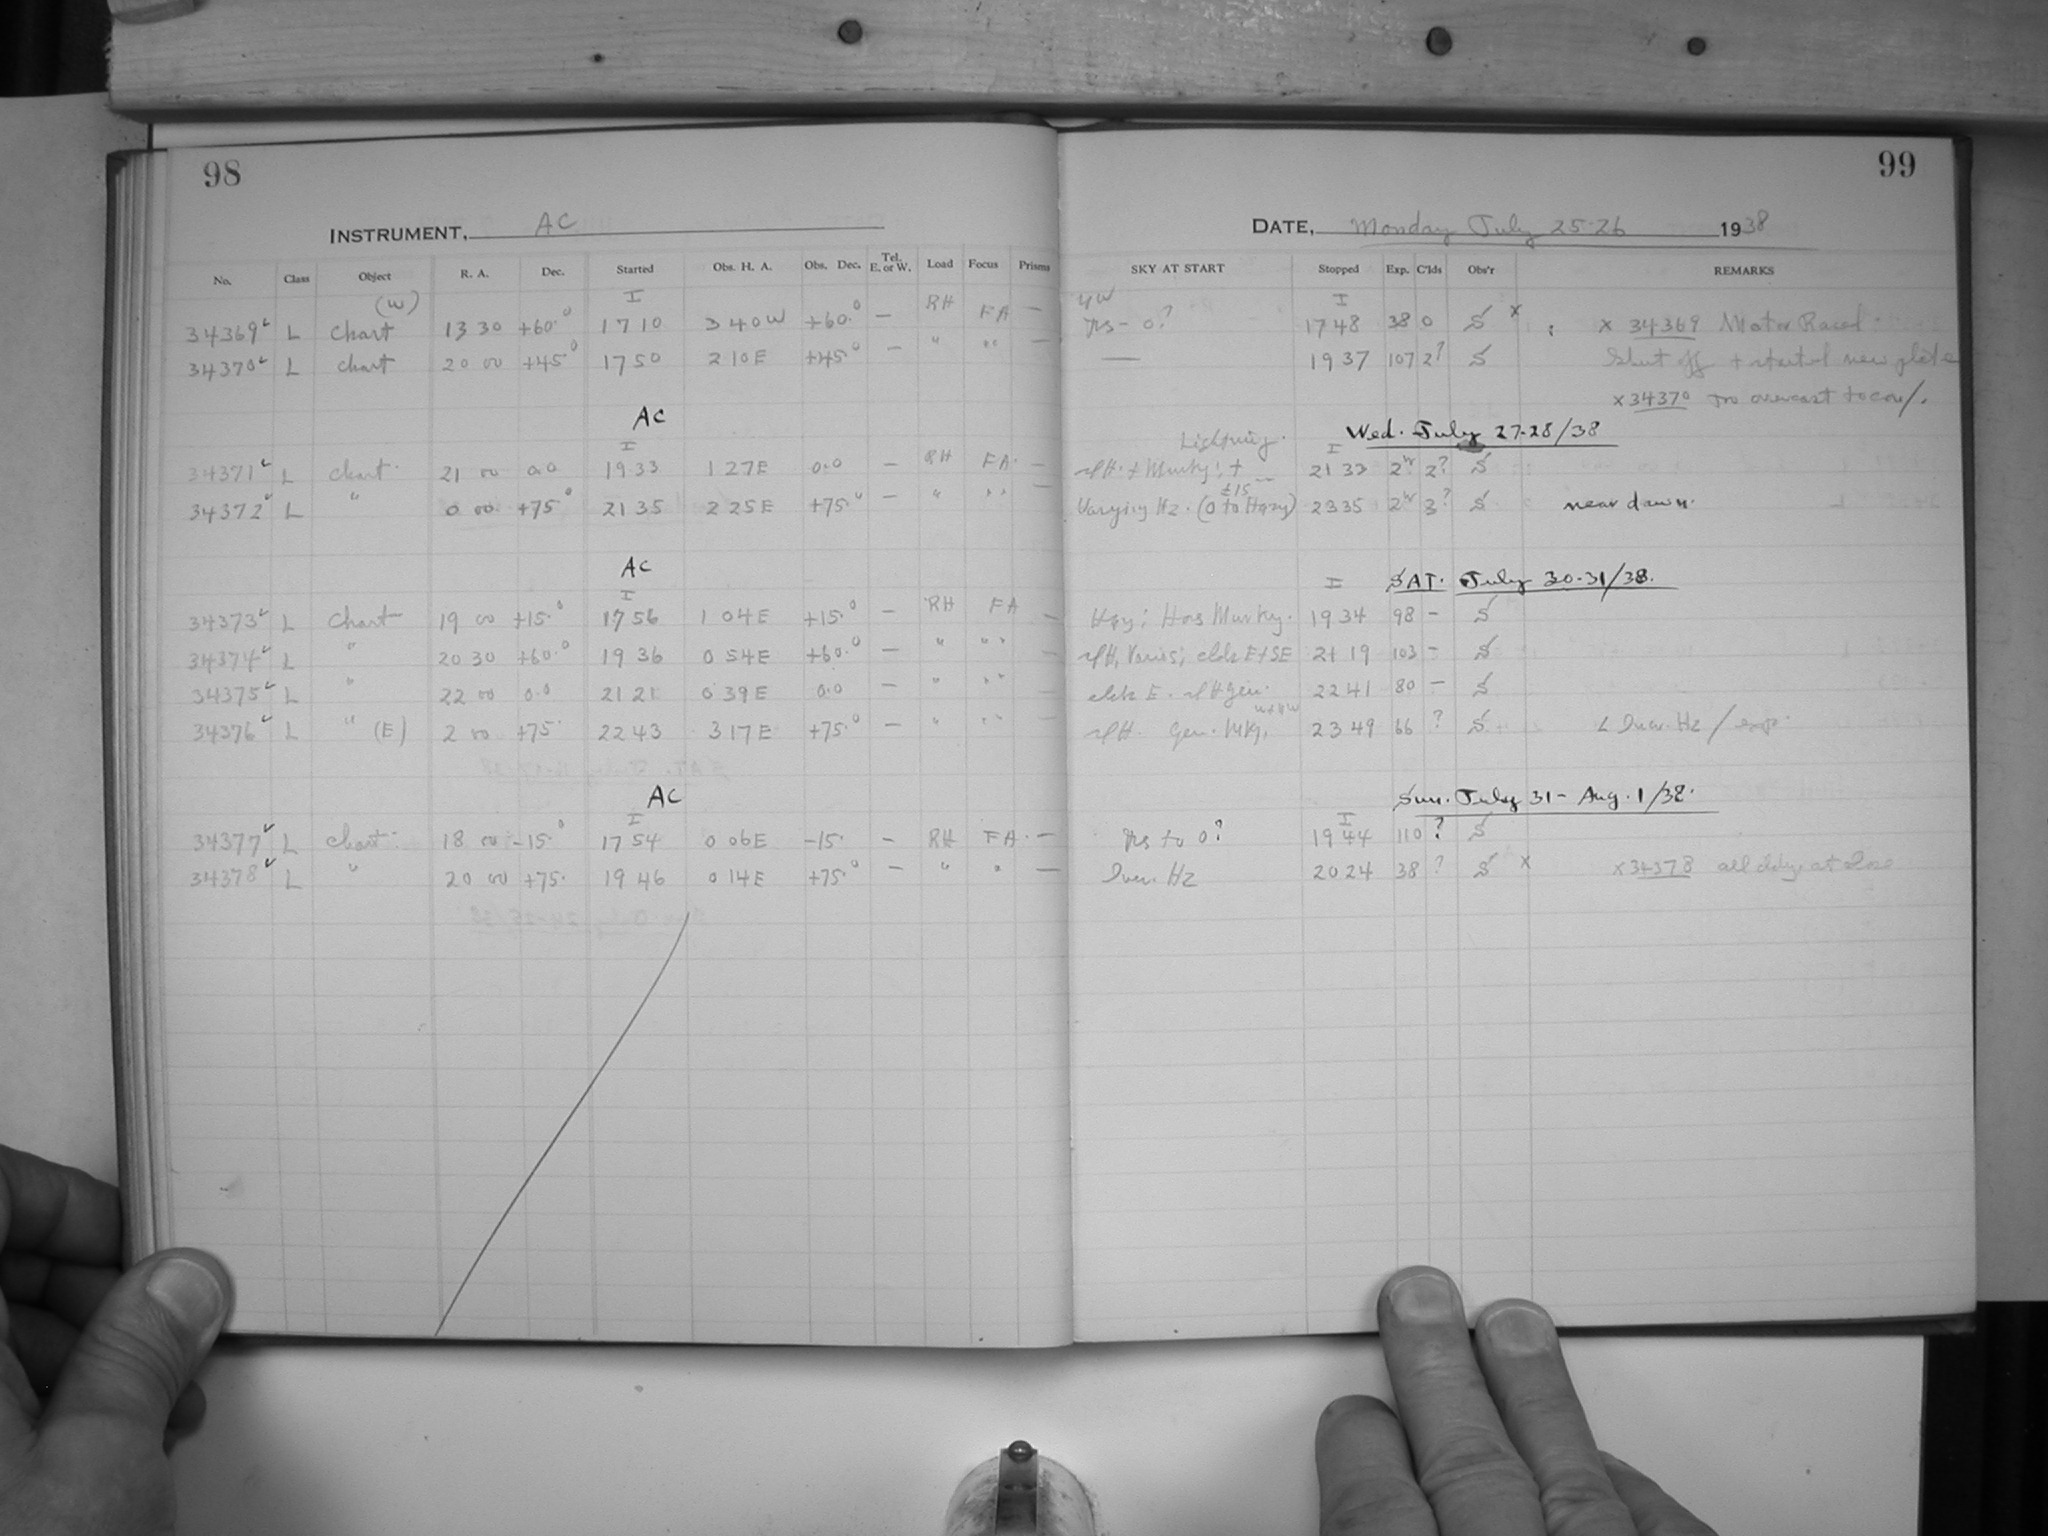 98
99
INSTRUMENT, AC
DATE, Monday July 25-26 1938
No. Class Object R. A. Dec. Started Obs. H. A. Obs. Dec. Tel. E. or W. Load Focus Prisms SKY AT START Stopped Exp. C'lds Obs'r REMARKS
(W) I I
34369 L Chart 13 30 +60.° 17 10 3 40 W +60.° — RH FA — 0? 17 48 38 0 S x x 34369 Motor Raced.
34370 L chart 20 00 +45° 17 50 2 10 E +45° — " " — — 19 37 107 2? S Shut off + started new plate
x 34370 overcast to
AC Wed. July 27-28/38
I Lightning. I
34371 L chart. 21 00 0.0 19 33 1 27 E 0.0 — RH FA. — + Murky; + 21 33 2 2? S
34372 L " 0 00 +75° 21 35 2 25 E +75.° — " " — Varying Hz. (0 to Hazy) 23 35 2 3? S near dawn.
AC SAT. July 30-31/38.
I I
34373 L Chart 19 00 +15.° 17 56 1 04 E +15.° — RH FA — Hzy; Hors Murky. 19 34 98 — S
34374 L " 20 30 +60.° 19 36 0 54 E +60.° — " " — Varies; clds E+SE 21 19 103 — S
34375 L " 22 00 0.0 21 21 0 39 E 0.0 — " " — clds E. gen. 22 41 80 — S
34376 L " (E) 2 00 +75. 22 43 3 17 E +75.° — " " — Gen. Mky. 23 49 66 ? S Hz / exp.
AC Sun. July 31 - Aug. 1/38.
I I
34377 L chart. 18 00 -15.° 17 54 0 06 E -15. — RH FA. — to 0? 19 44 110 ? S
34378 L " 20 00 +75. 19 46 0 14 E +75.° — " " — Hz 20 24 38 ? S x x 34378 all at close